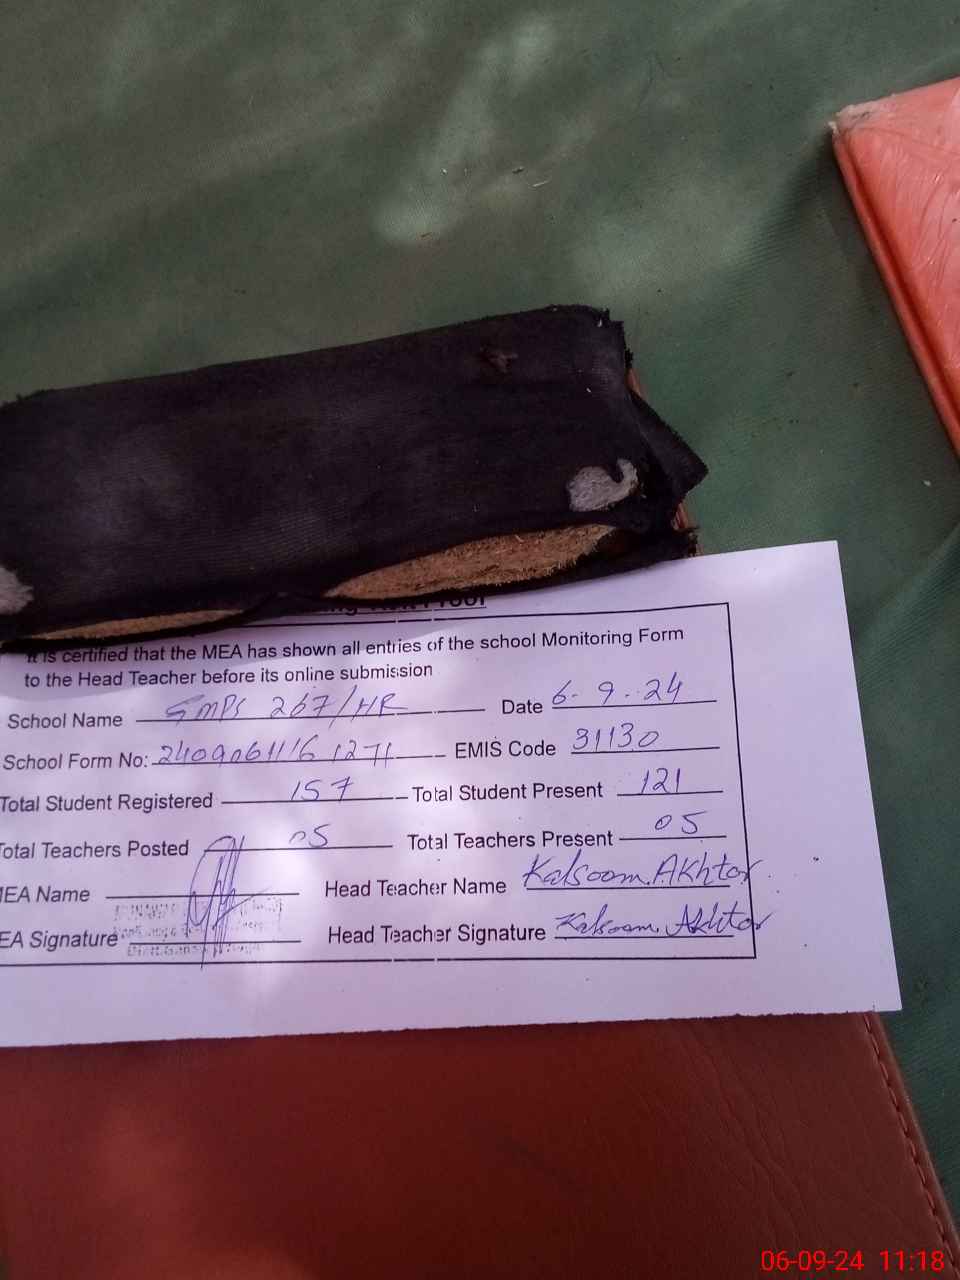 It is certified that the MEA has shown all entries of the school Monitoring Form
to the Head Teacher before its online submission
School Name GMPS 267/HR Date 6-9-24
School Form No: EMIS Code 31130
Total Student Registered 157 Total Student Present 121
Total Teachers Posted 05 Total Teachers Present 05
MEA Name Head Teacher Name Kalsoom Akhtar
EA Signature Head Teacher Signature Kalsoom Akhtar
06-09-24 11:18